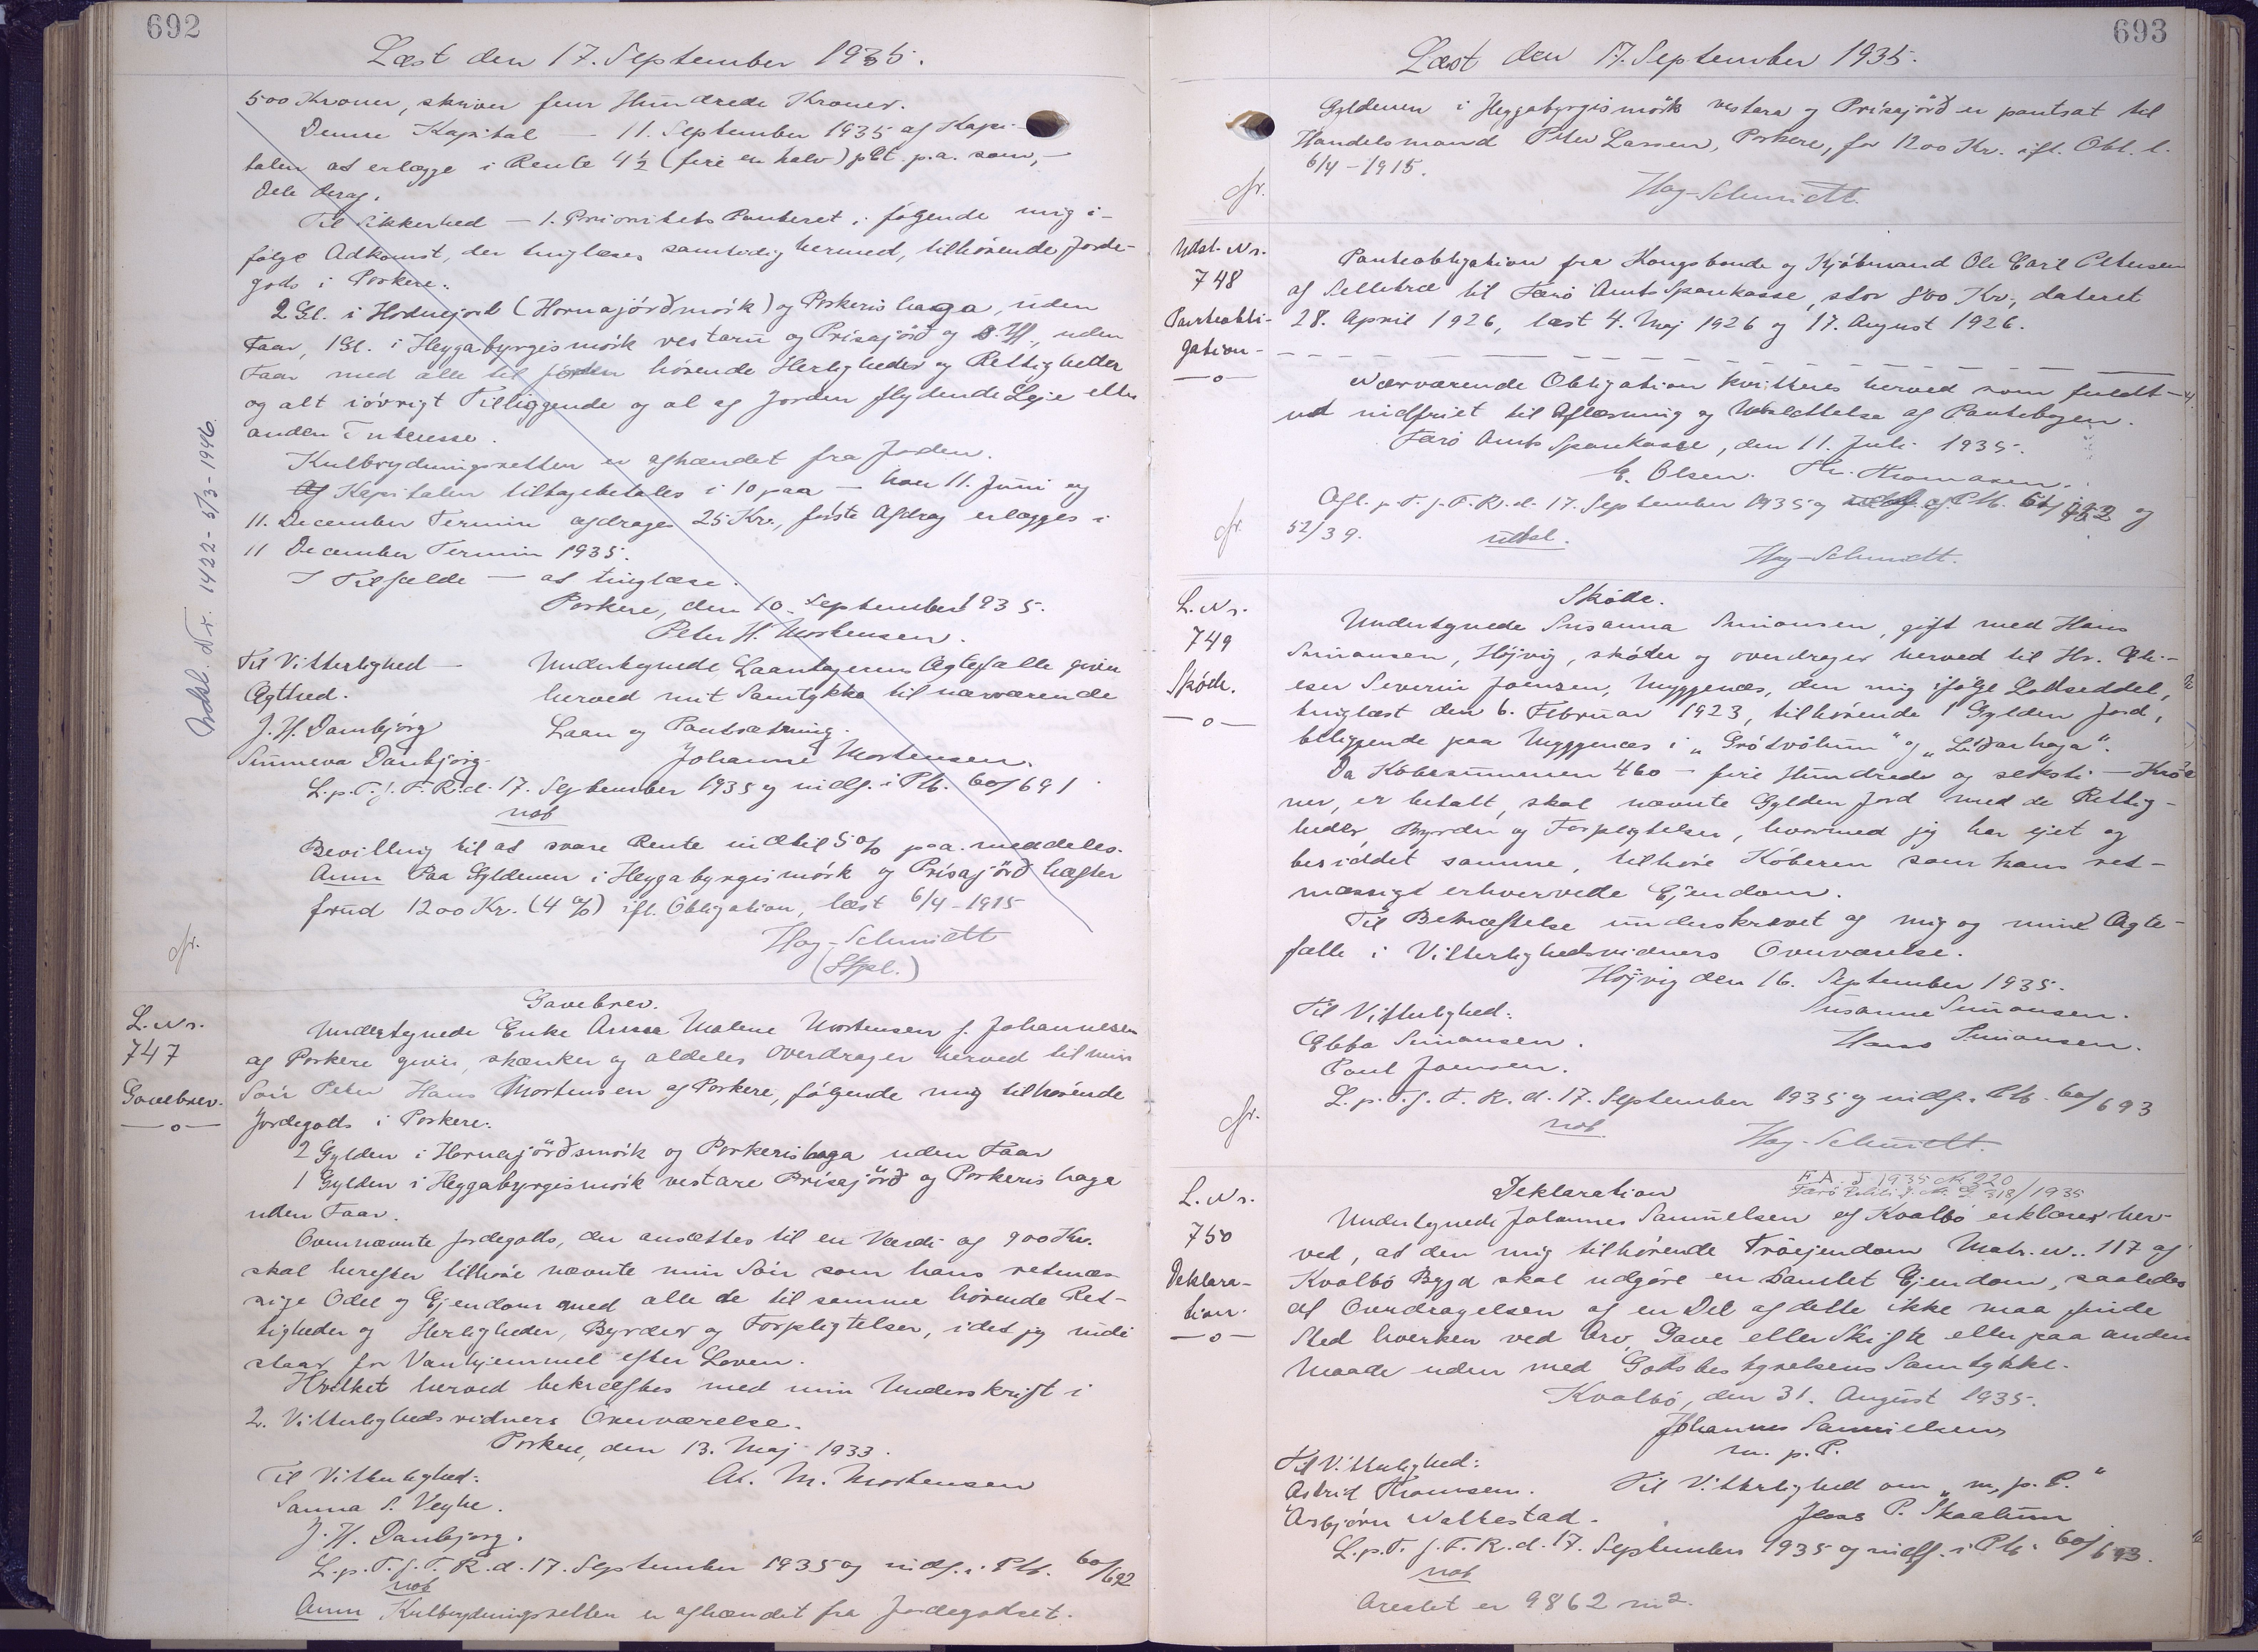 692
Læst den 17. September 1935.
500 Kroner, skriver fem Hundrede Kroner.
Denne Kapital — 11. September 1935 af Kapi-
talen at erlægge i Rente 4 1/2 (fire en halv) pCt. p.a. som, —
Dele deraf.
Til Sikkerhed — 1. Prioritets Panteret i følgende mig i-
følge Adkomst, der tinglæses samtidig hermed, tilhørende Jorde-
gods i Porkere:
2 Gl. i Hodnejord (Hornajørðmørk) og Porkerishaga, uden
Faar, 1 Gl. i Heygabyrgismørk vestaru og Prísajørð og uden
Faar med alle til Jorden hørende Herligheder og Rettigheder
og alt iøvrigt Tilliggende og al af Jorden flydende Leje eller
anden Interesse.
Kulbrydningsretten er afhændet fra Jorden.
Af Kapitalen tilbagebetales i 10 paa — hver 11. Juni og
11. December Termin afdrages 25 Kr., første Afdrag erlægges i
11 December Termin 1935.
I Tilfælde — at tinglæse.
Porkere, den 10. September 1935.
Peter H. Mortensen.
Til Vitterlighed — Undertegnede Laantagerens Ægtefælle giver
Ægthed. herved mit Samtykke til nærværende
J. H. Dambjørg Laan og Pantsætning.
Sunneva Danbjørg. Johanne Mortensen.
L. p. T. f. F. R. d. 17. September 1935 og indf. i Pb. 60/691
not
Bevilling til at svare Rente indtil 5 % p.a. meddeles.
Anm Paa Gyldenen i Heygabyrgismørk og Prísajørð hæfter
forud 1200 Kr. (4 %) ifl. Obligation, læst 6/4 - 1915
Hag-Schmidt
Cfr.
Indkl. Nr. 1422 - 5/3 - 1946.
L. Nr.
747
Gavebrev.
—o—
Gavebrev.
Undertegnede Enke Anna Malene Mortensen f. Johannesen
af Porkere giver, skænker og aldeles overdrager herved til min
Søn Peter Hans Mortensen af Porkere, følgende mig tilhørende
Jordegods i Porkere:
2 Gylden i Hornajørðsmørk og Porkerishaga uden Faar
1 Gylden i Heygabyrgismørk vestare Prísajørð og Porkeris haga
uden Faar.
Ovennævnte Jordegods, der ansættes til en Værdi af 900 Kr.
skal herefter tilhøre nævnte min Søn som hans retmæs-
sige Odel og Ejendom med alle de til samme hørende Ret-
tigheder og Herligheder, Byrder og Forpligtelser, idet jeg inde
staar for Vanhjemmel efter Loven.
Hvilket herved bekræftes med min Underskrift i
2. Vitterlighedsvidners Overværelse.
Porkere, den 13. Maj 1933.
Til Vitterlighed: A. M. Mortensen
Sanna S. Veyhe.
J. H. Danbjørg.
L. p. T. f. F. R. d. 17. September 1935 og indf. i Pb. 60/692
not
Anm Kulbrydningsretten er afhændet fra Jordegodset.
693
Læst den 17. September 1935.
Gyldenen i Heygabyrgismørk vestara og Prísajørð er pantsat til
Handelsmand Peter Larsen, Porkere, for 1200 Kr. ifl. Obl. l.
6/4 - 1915.
Cfr.
Hag-Schmidt.
Udsl. Nr.
748
Panteobli-
gation-
—o—
Panteobligation fra Kongsbonde og Kjøbmand Ole Carl Petersen
af Selletræ til Færø Amts Sparekasse, stor 800 Kr., dateret
28. April 1926, læst 4. Maj 1926 og 17. August 1926.
Nærværende Obligation kvitteres herved som fuldt-
ud indfriet til Aflæsning og Udslettelse af Pantebogen.
Færø Amts Sparekasse, den 11. Juli 1935.
E. Olsen. Thomasen.
Afl. p. T. f. F. R. d. 17. September 1935 og af Pb. og
52/39.
udsl.
Hag-Schmidt.
Cfr.
L. Nr.
749
Skøde.
—o—
Skøde.
Undertegnede Susanna Simonsen, gift med Hans
Simonsen, Højvig, skøder og overdrager herved til Hr. Eli-
eser Severin Joensen, Myggenæs, den mig ifølge Lodseddel,
tinglæst den 6. Februar 1923, tilhørende 1 Gylden Jord,
beliggende paa Myggenæs i „Grótvølum" og „Líðarhaga".
Da Købesummen 460 — fire Hundrede og seksti — Kro-
ner, er betalt, skal nævnte Gylden Jord med de Rettig-
heder, Byrder og Forpligtelser, hvormed jeg har ejet og
besiddet samme, tilhøre Køberen som hans ret-
mæssigt erhvervede Ejendom.
Til Bekræftelse underskrevet af mig og mind Ægte-
fælle i Vitterlighedsvidners Overværelse.
Højvig den 16. September 1935.
Til Vitterlighed: Susanne Simonsen.
Ebba Simonsen. Hans Simonsen.
Poul Joensen.
L. p. T. f. F. R. d. 17. September 1935 og indf. i Pb. 60/693
not
Cfr.
Hag-Schmidt.
L. Nr.
750
Deklara-
tion.
—o—
Deklaration
F. A. J 1935 Nr. 220
/1935
Undertegnede Johannes Samuelsen af Kvalbø erklærer her-
ved, at den mig tilhørende Trøejendom Matr. nr. 117 af
Kvalbø Bygd skal udgøre en samlet Ejendom, saaledes
at Overdragelsen af en Del af dette ikke maa finde
Sted hverken ved Arv, Gave eller Skifte eller paa anden
Maade uden med Godsbestyrelsens Samtykke.
Kvalbø, den 31. August 1935.
Johannes Samuelsen
m. p. P.
Til Vitterlighed:
Astrid Thomsen. Til Vitterlighed om „m. p. P."
Asbjørn Wathestad. P. Skaalum
L. p. T. f. F. R. d. 17. September 1935 og indf. i Pb. 60/693.
not
Arealet er 9862 m2.